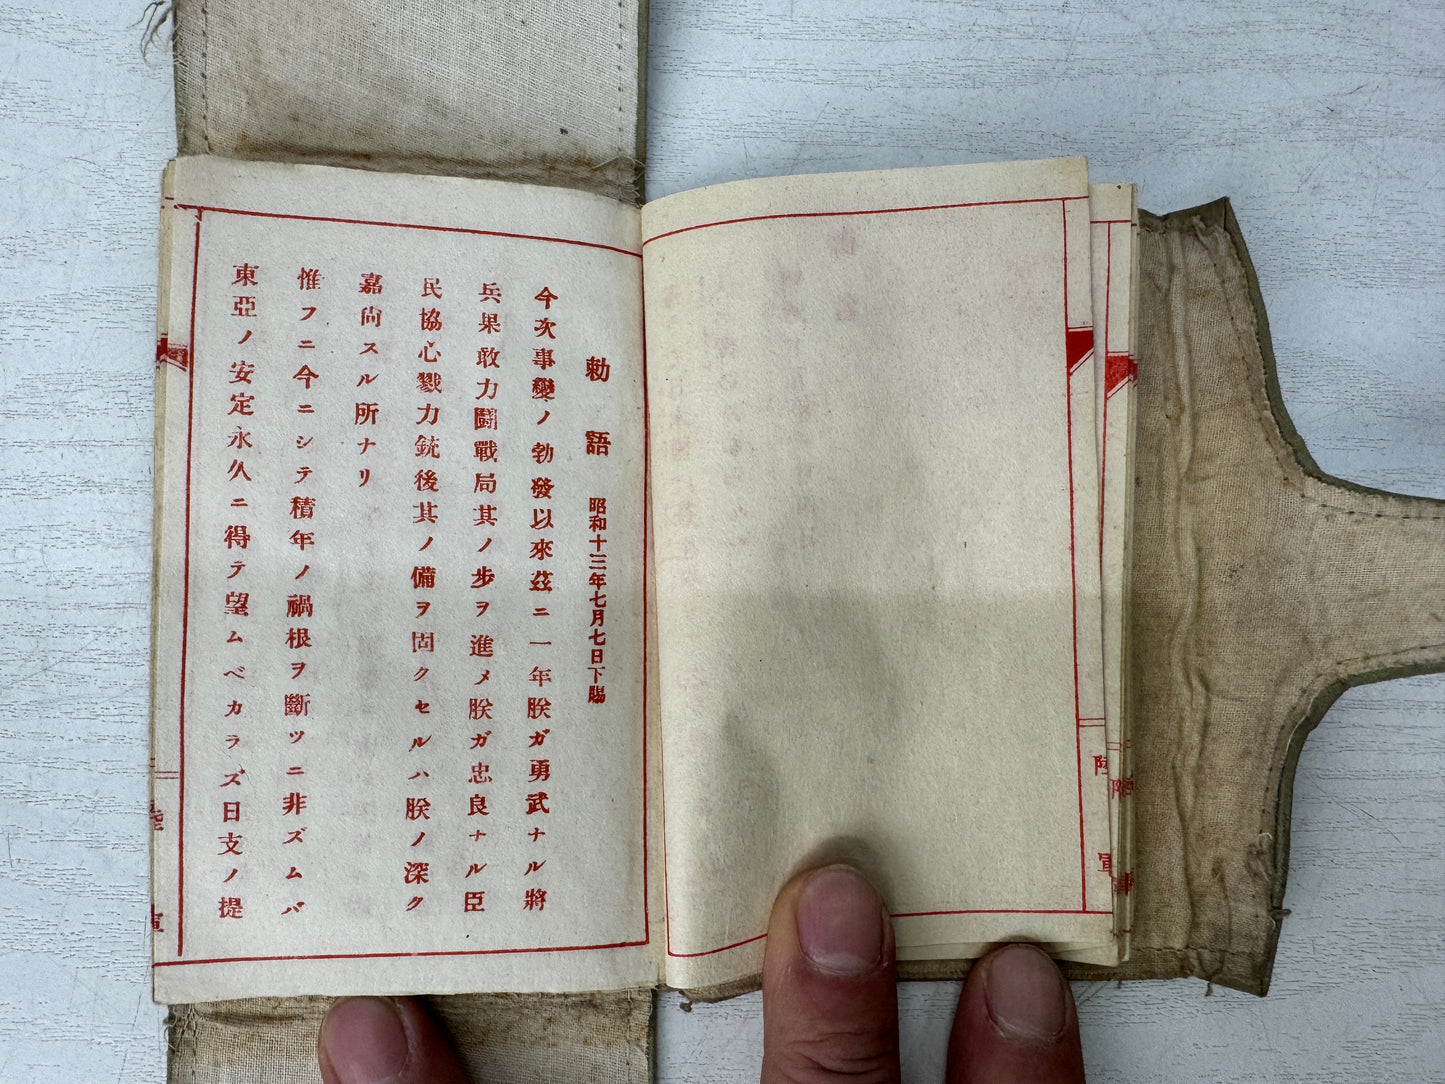 勅語 昭和十三年七月七日下賜
今次事變ノ勃發以來茲ニ一年朕ガ勇武ナル將
兵果敢力鬪戰局其ノ步ヲ進メ朕ガ忠良ナル臣
民協心戮力銃後其ノ備ヲ固クセルハ朕ノ深ク
嘉尙スル所ナリ
惟フニ今ニシテ積年ノ禍根ヲ斷ツニ非ズムバ
東亞ノ安定永久ニ得テ望ムベカラズ日支ノ提
陸軍
陸軍